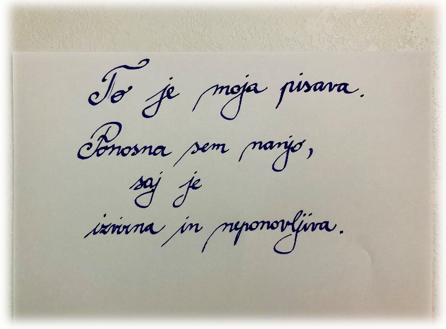 To je moja pisava.
Ponosna sem nanjo,
saj je
izvirna in neponovljiva.